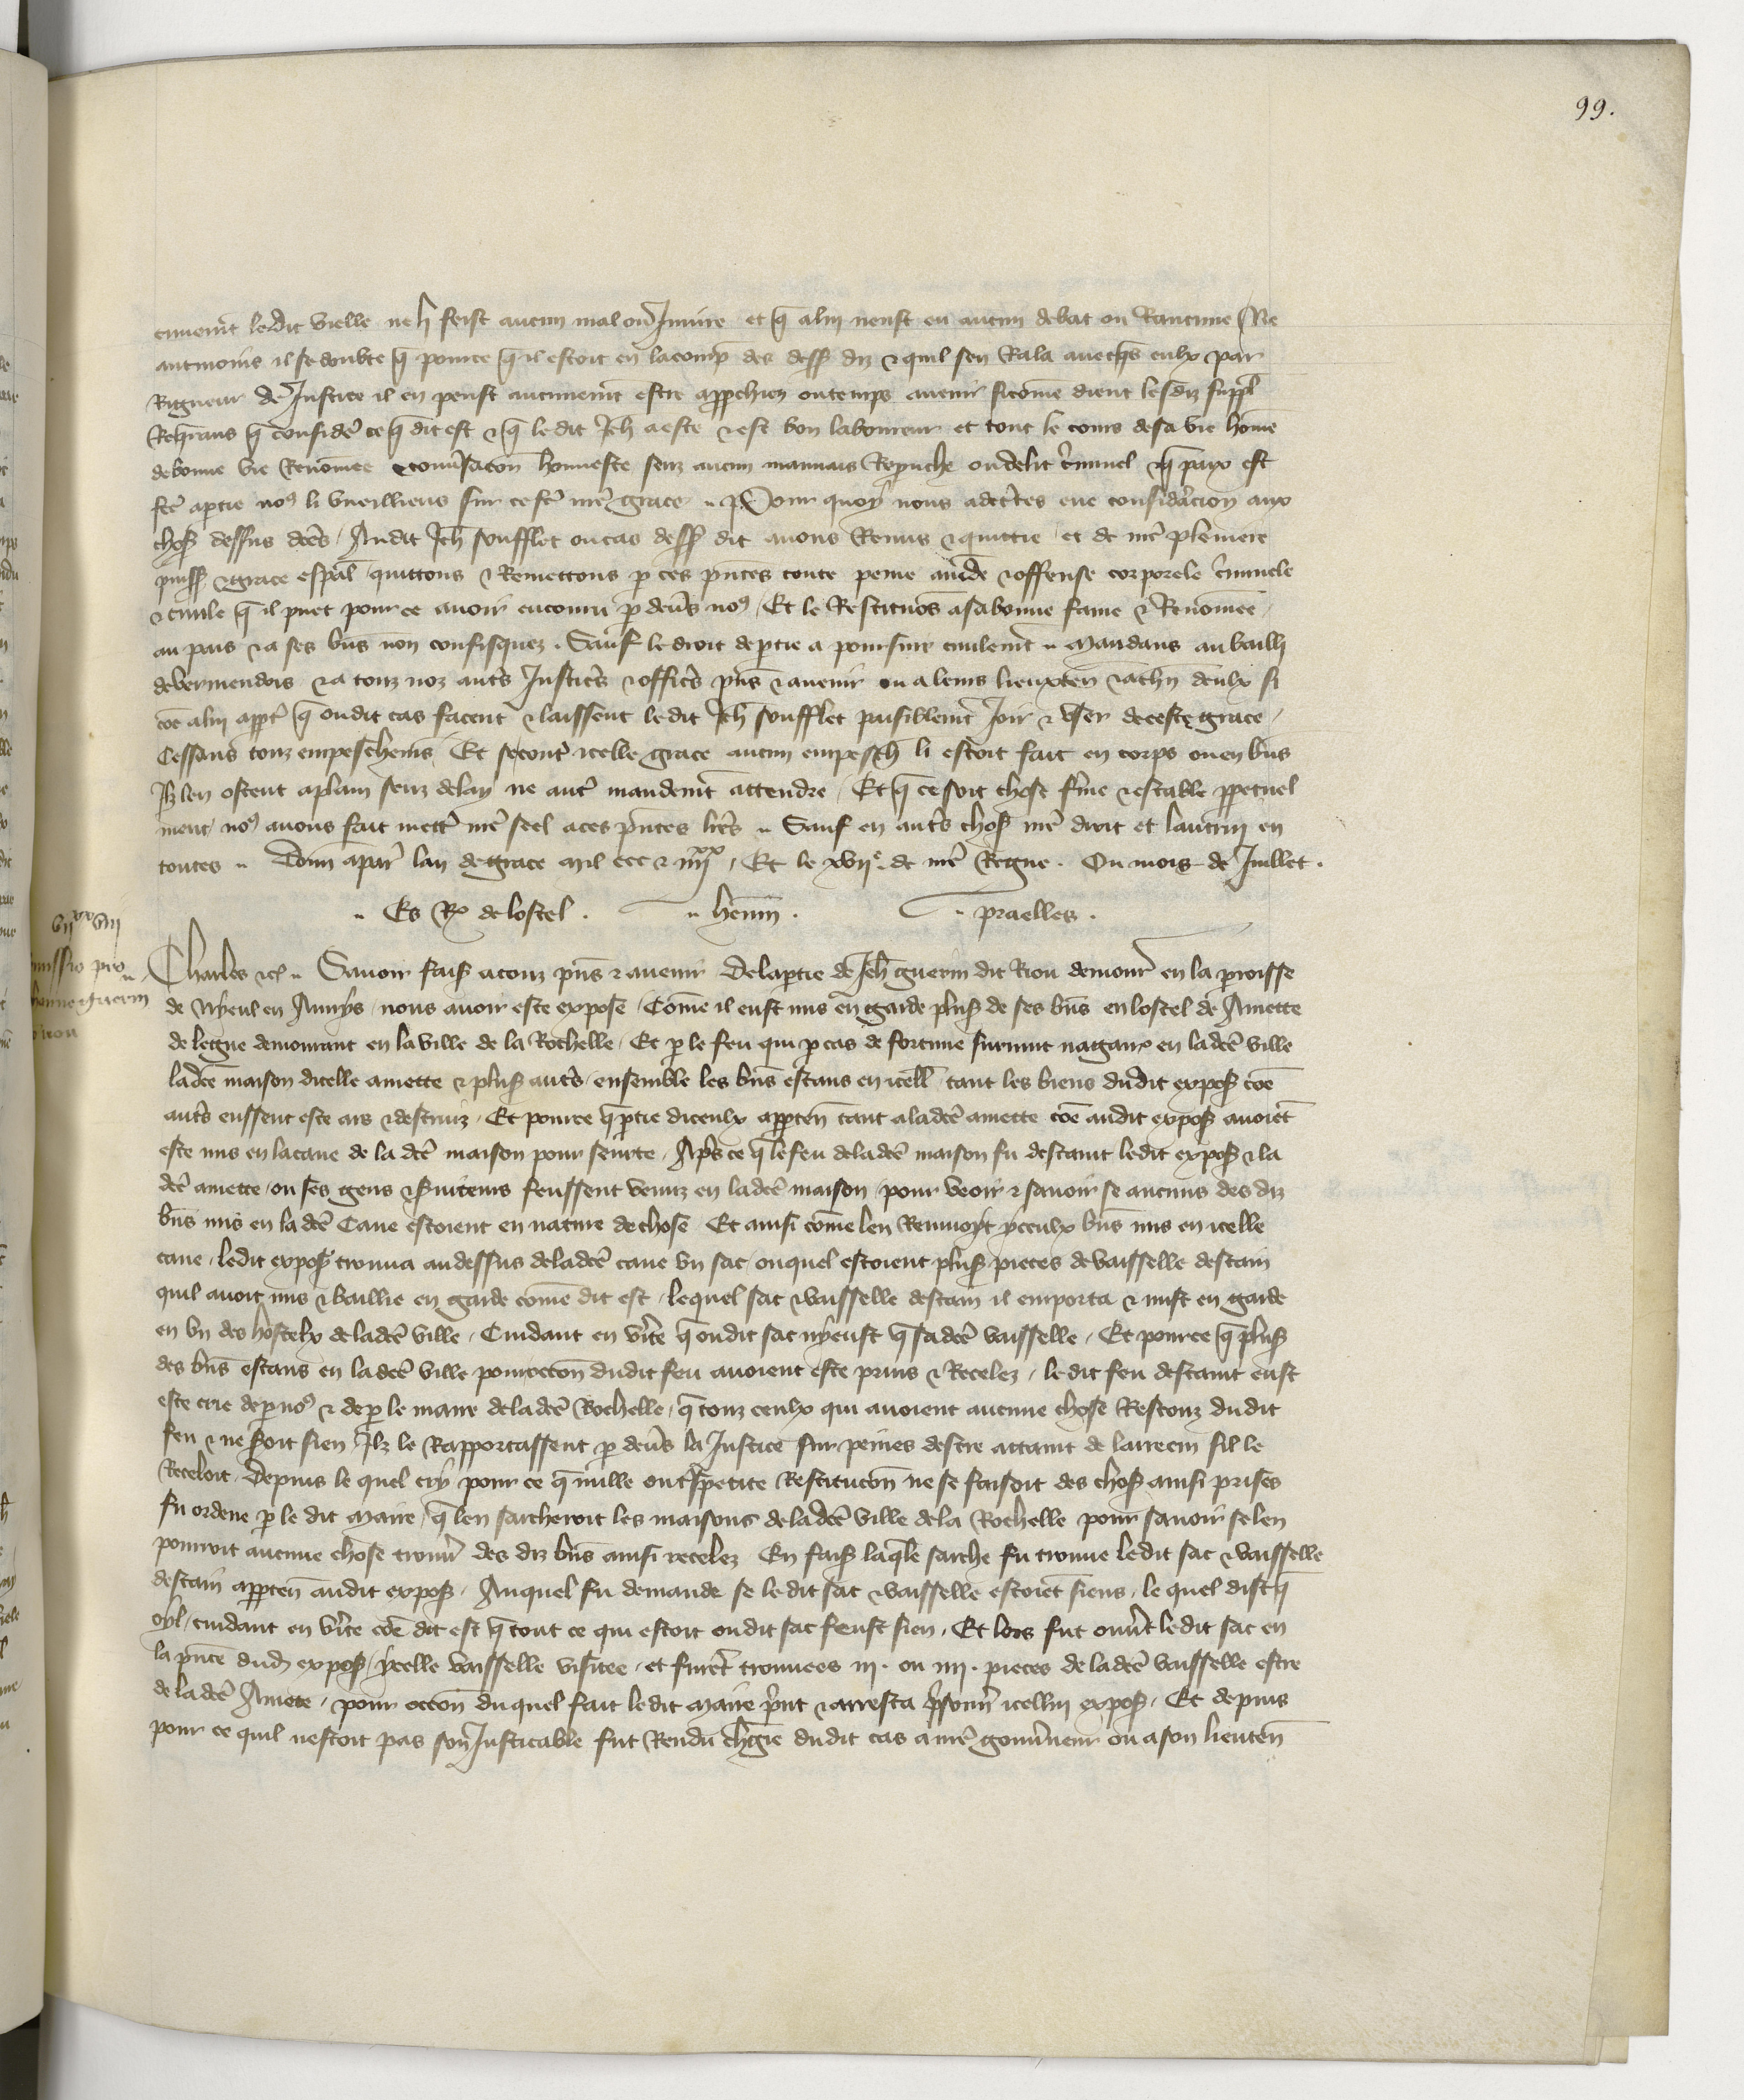 99.
envenit ledit vielle ne li feist aucun mal ou Iniure et q̄ alui neust eu aucun debat ou Rancune Ne
antmoins il se doubte q̄ pource q̄ il estoit en lacomp̄ des dess diz & quil sen Rala auecq̄s eulx par
Rigueur de Justice il en peust aucunemt estre app̄chiez ou temps auenir sicōme dient lesdiz suppl
Req̄rans q̄ considē ce q̄ dit est & q̄ le dit Jeh̄ a este & est bon laboureur et tout le cours desa vie hōme
debonne vie Renōmee & conūsacōn honneste senz aucun mauuais Rep̄uche ou delit c̄minel & q̄ paix est
fcē aptie nos li vueilliens sur ce fē nrē grace .. Pour quoy nous adcētes eue considāciōn aux
chos dessus dcēs / Audit Jeh̄ soufflet ou cas dess dit auons Remis & quictie / et de nrē pleniere
puiss & grace esp̄al / quittons & Remettons p ces p̄ntes toute peine am̄de & offense corporele c̄minele
& ciuile q̄ il puet pour ce auoir encouru p deūs nos / Et le Restituōs asabonne fame & Renōmee /
au pais & a ses bn̄s non confisquez . Sauf le droit de ptie a poursuir ciuilemt .. Mandans au bailli
de vermendois & a touz noz aut̄s Justic̄s & offic̄s p̄ns & auenir ou a leurs lieuxten̄ & ach̄n deulx si
cōe alui app̄t q̄ ou dit cas facent & laissent le dit Jeh̄ soufflet paisiblemt Joir & vser deceste grace /
Cessans touz empeschemēs Et se cont̄ icelle grace aucun empesch̄ li estoit fait en corps ou en bn̄s
Ilz len ostent aplain senz delay ne aut̄ mandemt attendre / Et q̄ ce soit chose f̄me & estable ppetuel
ment / nos auons fait mett̄ nrē seel a ces p̄ntes lr̄es .. Sauf en aut̄s chos nrē droit et lautruy en
toutes .. Donn̄ apar̄ lan degrace Mil ccc & iiijxx / Et le xvije de nrē Regne . Ou mois de Juillet .
.. Es Rx de lostel . .. henin̄ . .. praelles .
vijxx viij
missio pro
hanne guerin
riou
Charles &c̄ .. Sauoir fais a touz p̄ns & auenir Delaptie de Jeh̄ guerin dit Riou demour̄ en la p̄roisse
de Nyeul en Aunys / nous auoir este expose / Cōme il eust mis en garde plus de ses bn̄s en lostel de Amette
de legue demourant en la ville de la Rochelle / Et p le feu qui p cas de fortune suruint nagaire en ladcē ville
ladcē maison dicelle amette & plus aut̄s / ensemble les bn̄s estans en icell / tant les biens dudit expos cōe
aut̄s eussent este ars & destruiz / Et pource q̄ ptie diceulx app̄ten̄ tant a ladcē amette cōe audit expos auoiēt
este mis en lacaue de la dcē maison pour seurte / Ap̄s ce q̄ lefeu deladcē maison fu destaint ledit expos & la
dcē amette / ou ses gens & suiteurs feussent venuz en ladcē maison / pour veoir & sauoir se aucuns des diz
bn̄s mis en la dcē Caue estoient en nature de chose / Et ainsi cōme len Remuoyt yceulx bn̄s mis en icelle
caue / ledit expos trouua audessus deladcē caue vn sac / ouquel estoient plus pieces de vaisselle destain
quil auoit mis & baillie en garde cōme dit est / lequel sac & vaisselle destain il emporta & mist en garde
en vn des hostelx deladcē ville / Cuidant en v̄ite q̄ ondit sac nyeust q̄ sadcē vaisselle / Et pource q̄ plus
des bn̄s estans en ladcē ville pouroccōn dudit feu auoient este prins & Recelez / le dit feu destaint eust
este crie de p nos & de p le maire deladcē Rochelle / q̄ touz ceulx qui auoient aucune chose Rescouz dudit
feu & ne soit sien Ilz le Rapportassent p deūs la Justice sur peines destre attaint de larrecin sil le
Receloit / Depuis le quel cry pour ce q̄ nulle ou t̄spetite Restitucōn ne se faisoit des chos ainsi prises
fu ordene p le dit Maire / q̄ len sarcheroit les maisons deladcē ville dela Rochelle pour sauoir se len
pourroit aucune chose trouū des diz bn̄s ainsi recelez En fais laq̄le sarche fu trouue ledit sac & vaisselle
destain app̄ten̄ audit expos / Auquel fu demande se le dit sac & vaisselle estoiēt siens / le quel dist q̄
oyl / cuidant en v̄ite cōe dit est q̄ tout ce qui estoit ou dit sac feust sien / Et lors fut ouūt ledit sac en
la p̄nce dud expos / ycelle vaisselle visitee / et furēt trouuees iij. ou iiij. pieces deladcē vaisselle estre
deladcē Amete / pour occōn duquel fait ledit Maire p̄nt & arresta p̄sonn̄ icellui expos / Et depuis
pour ce quil nestoit pas son Justicable fut Rendu ch̄gie dudit cas a nrē gouūneur ou a son lieuten̄